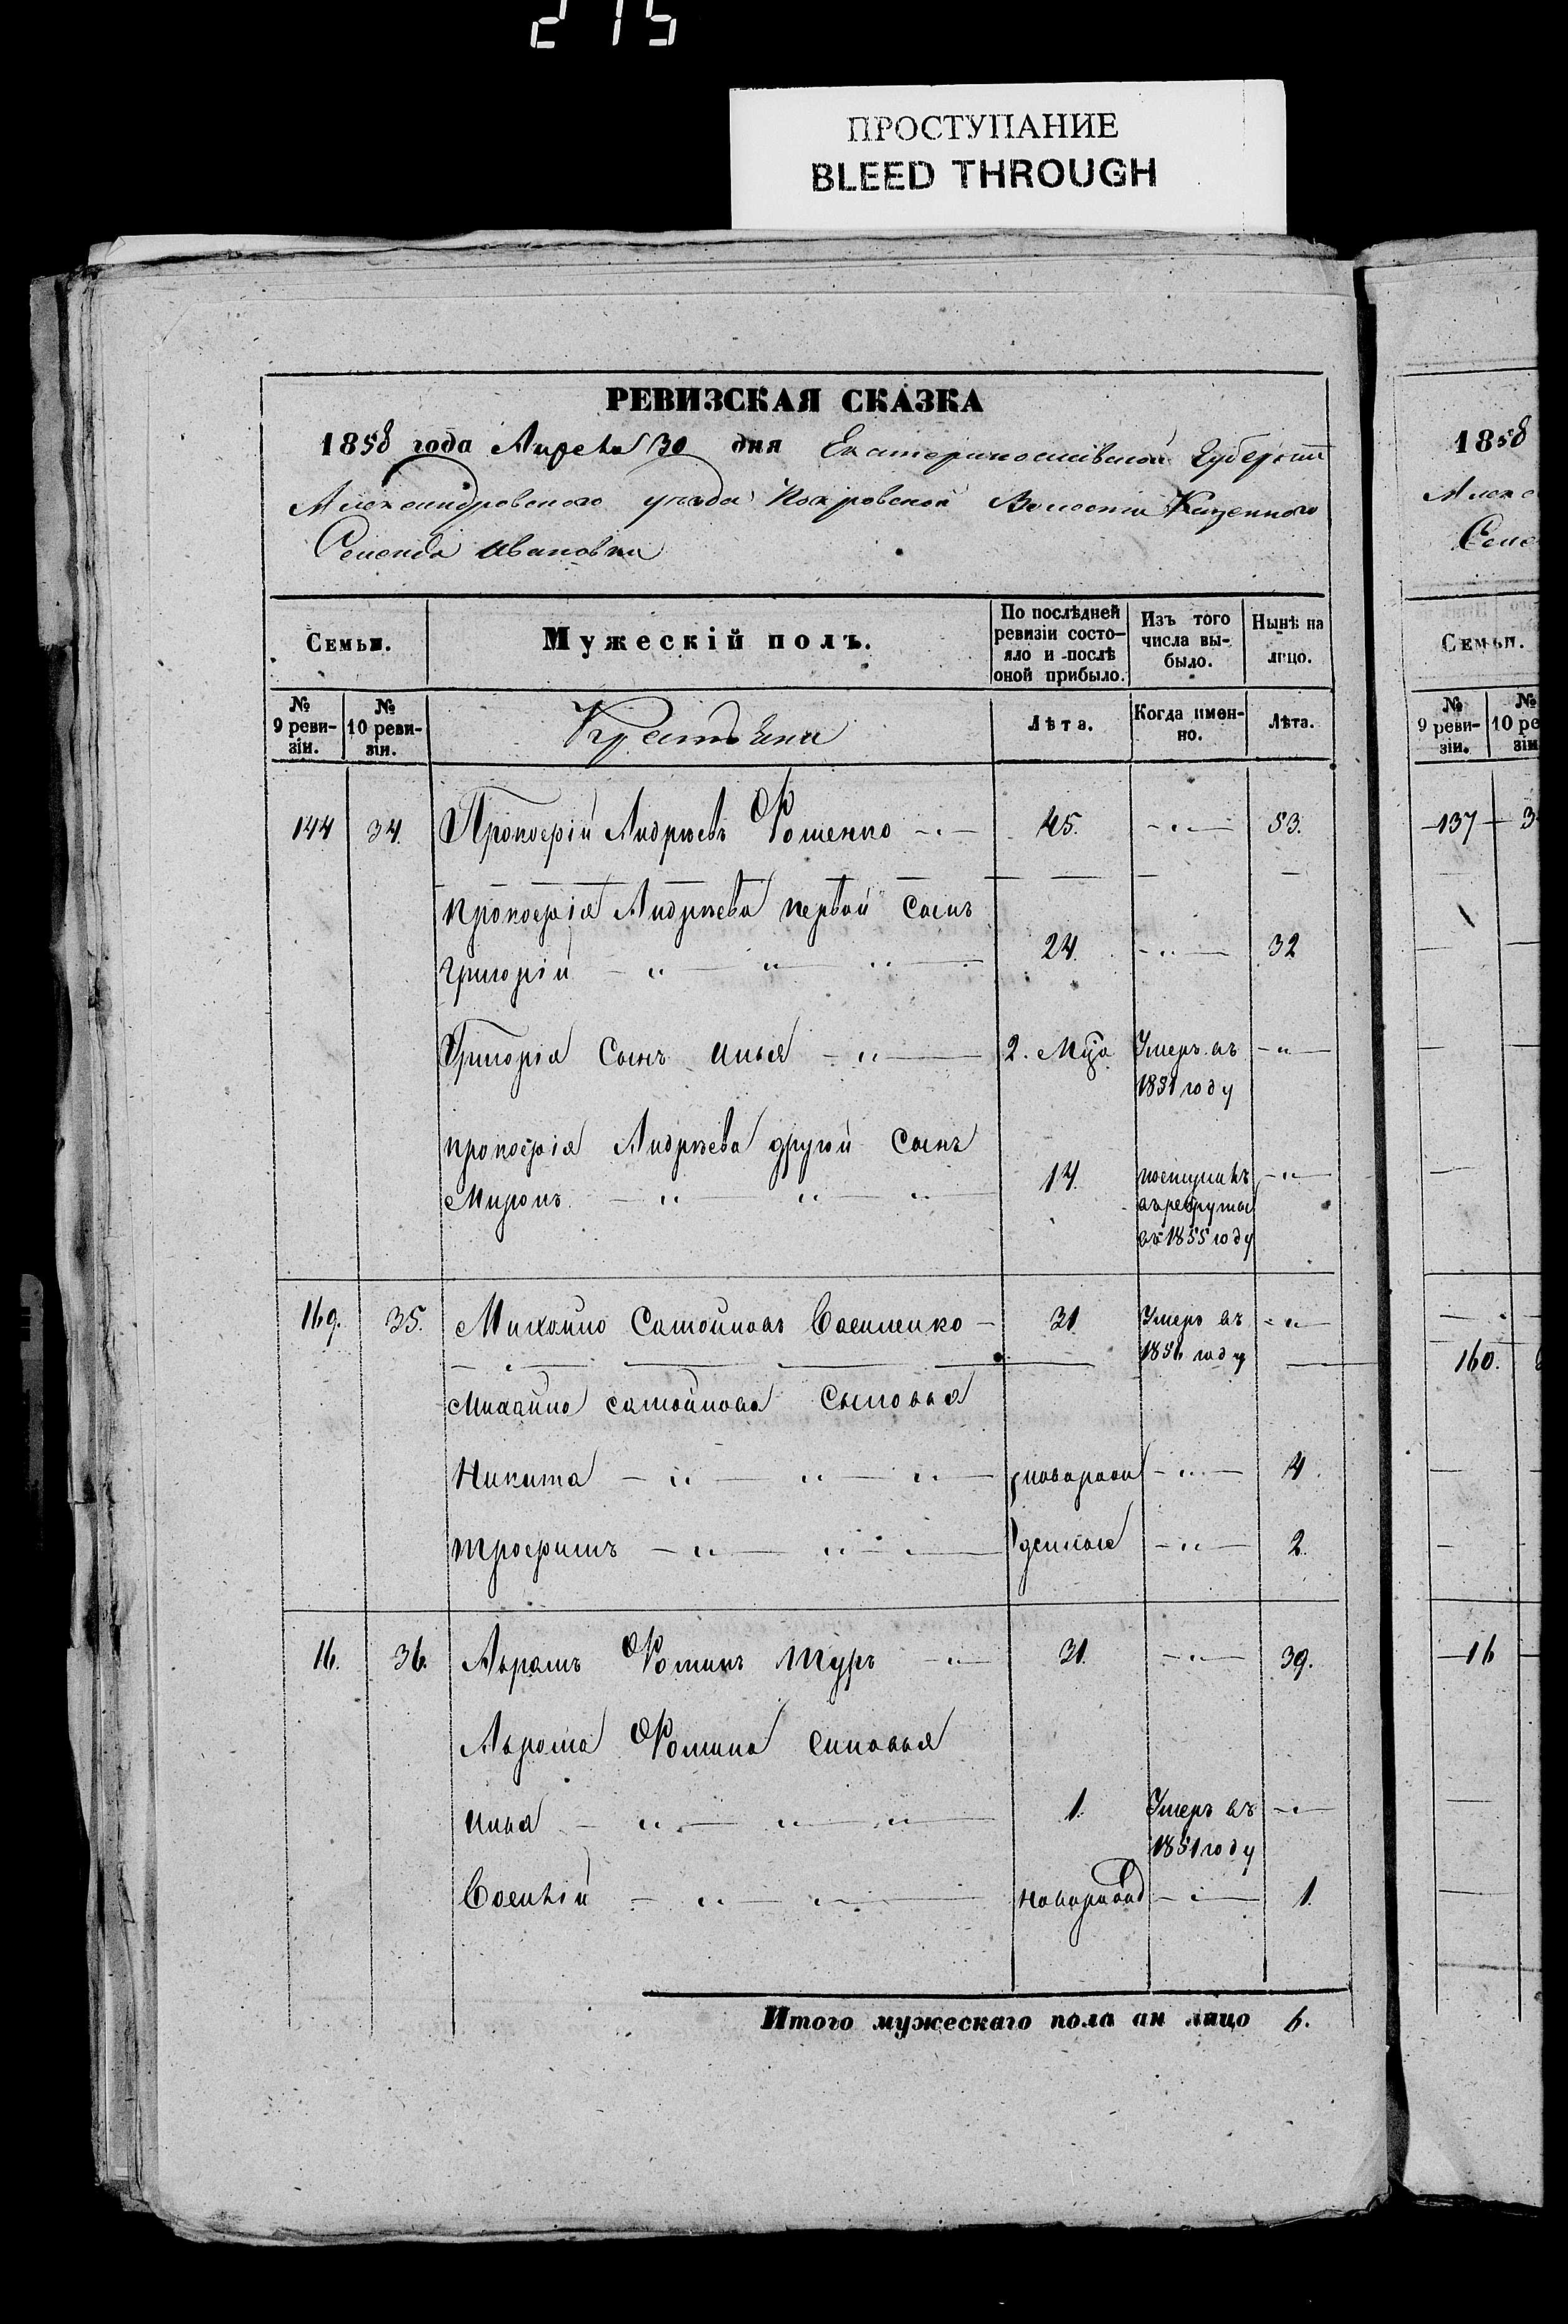 215
ПРОСТУПАНИЕ
BLEED THROUGH
РЕВИЗСКАЯ СКАЗКА
1858 года Апреля 30 дня Екатеринославской Губернии
Александровского уезда Покровской Волости Казенного
Селенія Ивановки
Семьи.
Мужескій полъ.
По послѣдней ревизіи состояло и послѣ оной прибыло.
Изъ того числа выбыло.
Нынѣ на лицо.
№ 9 ревизіи.
№ 10 ревизіи.
Крестьяне
Лѣта.
Когда именно.
Лѣта.
144 34. Прокофій Андрѣевъ Фоменко 45. 53.
Прокофія Андрѣева первой Сынъ
Григорій 24. 32
Григорія Сынъ Илья 2. Мца Умеръ въ
1851 году
Прокофія Андрѣева другой Сынъ
Миронъ 14. поступилъ
въ рекруты
въ 1855 году
169. 35. Михайло Самойловъ Василенко 31. Умеръ въ
1856 году
Михайла Самойлова Сыновья
Никита новорож 4.
Трофимъ денные 2.
16. 36. Абрамъ Фоминъ Туръ 31. 39.
Абрама Фомина Сыновья
Илья 1. Умеръ въ
1851 году
Василій новорожд 1.
Итого мужескаго пола ан лицо 6.
1858
Семьи.
№ 9 ревизіи.
№
137
160.
16